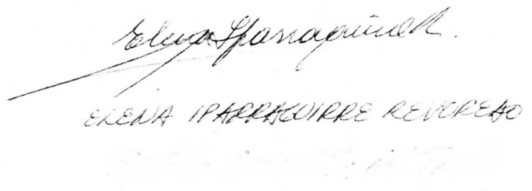 Elena Iparraguirre R.
ELENA IPARRAGUIRRE REVOREDO